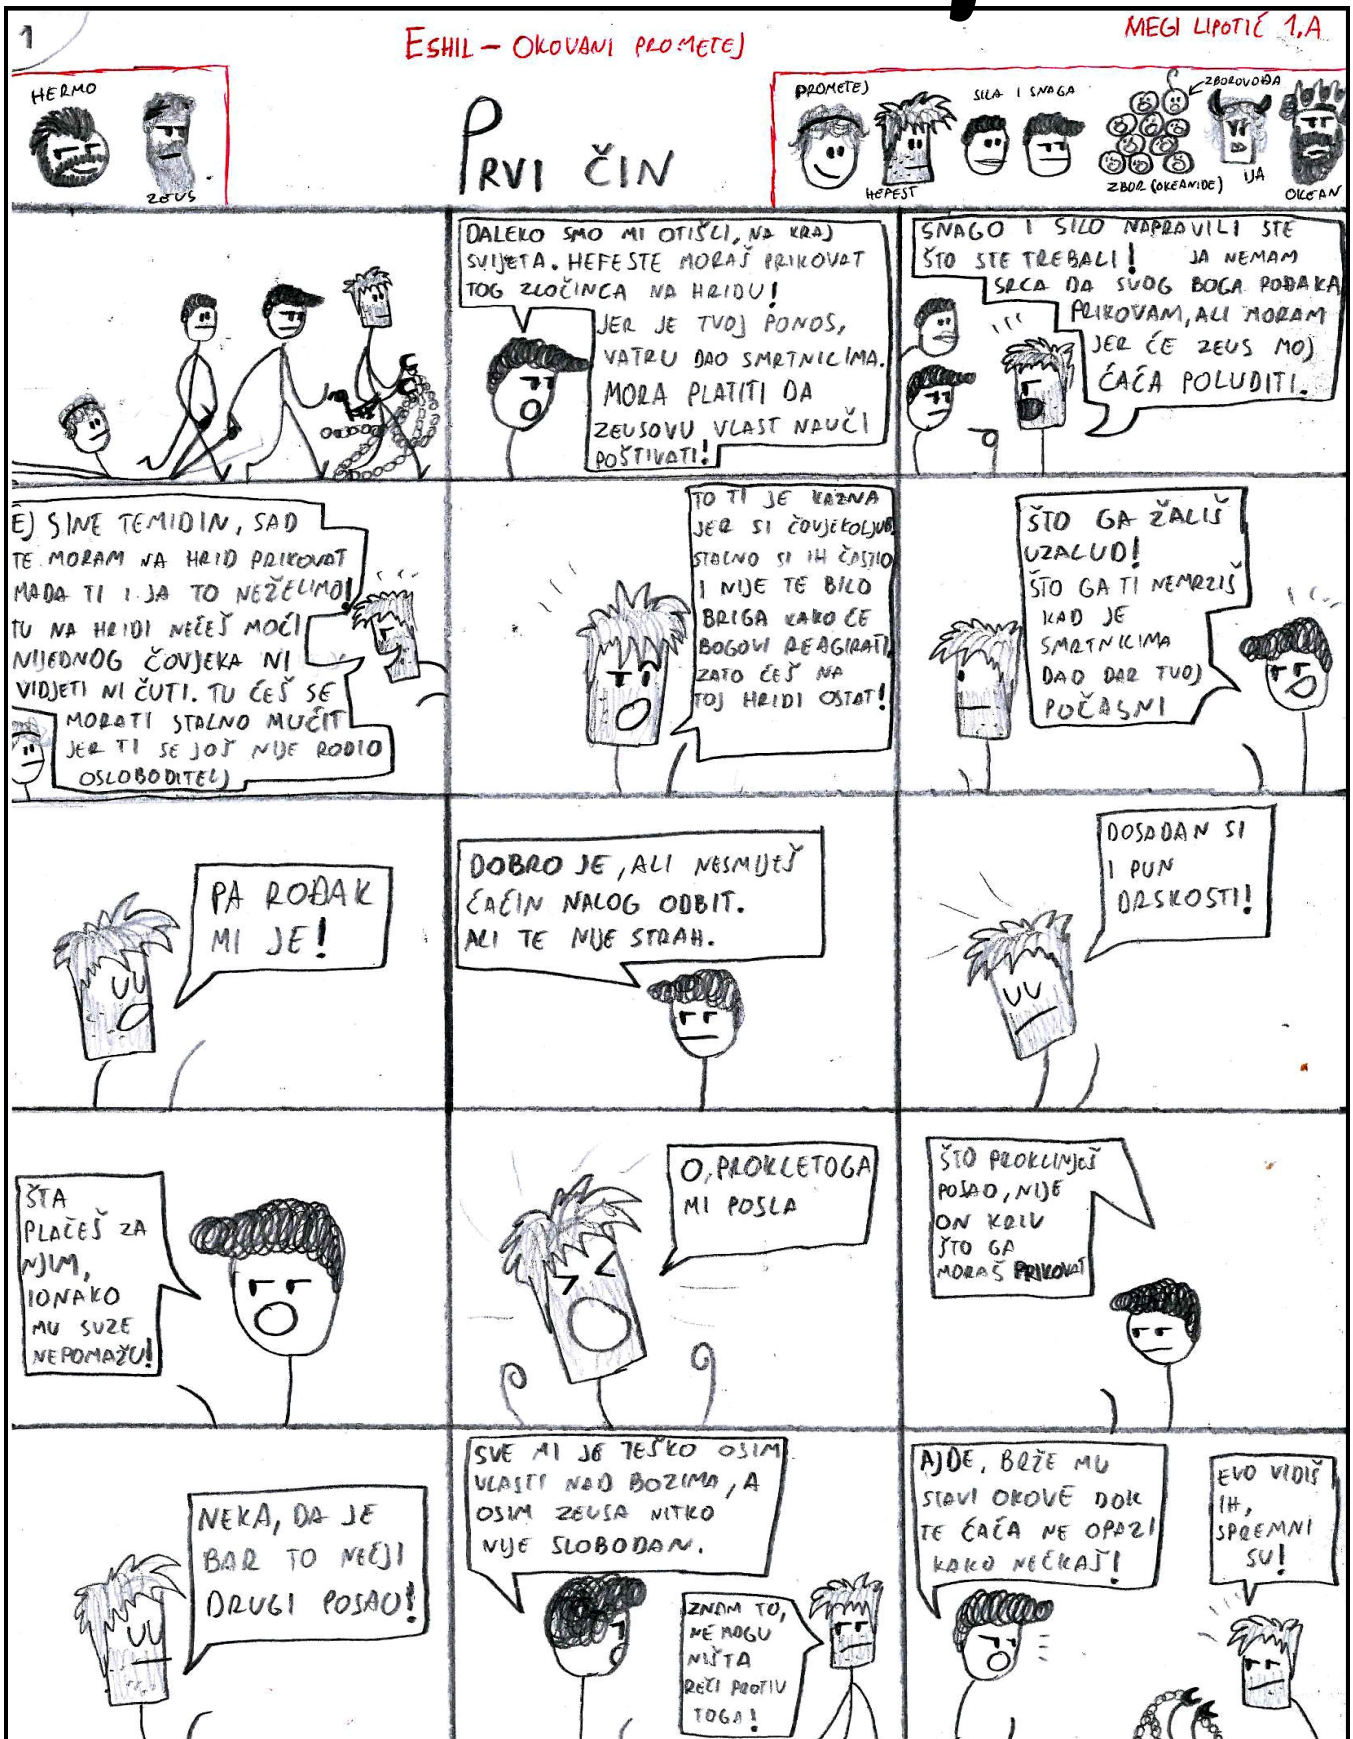 1
ESHIL - OKOVANI PROMETEJ
MEGI LIPOTIĆ 1.A
HERMO
ZEUS
PRVI ČIN
PROMETEJ
HEFEST
SILA I SNAGA
ZBOROVOĐA
ZBOR (OKEANIDE)
IJA
OKEAN
DALEKO SMO MI OTIŠLI, NA KRAJ
SVIJETA. HEFESTE MORAŠ PRIKOVAT
TOG ZLOČINCA NA HRIDU!
JER JE TVOJ PONOS,
VATRU DAO SMRTNICIMA.
MORA PLATITI DA
ZEUSOVU VLAST NAUČI
POŠTIVATI!
SNAGO I SILO NAPRAVILI STE
ŠTO STE TREBALI! JA NEMAM
SRCA DA SVOG BOGA ROĐAKA
PRIKOVAM, ALI MORAM
JER ĆE ZEUS MOJ
ĆAĆA POLUDITI.
EJ SINE TEMIDIN, SAD
TE MORAM NA HRID PRIKOVAT
MADA TI I JA TO NEŽELIMO!
TU NA HRIDI NEĆEŠ MOĆI
NIJEDNOG ČOVJEKA NI
VIDJETI NI ČUTI. TU ĆEŠ SE
MORATI STALNO MUČIT
JER TI SE JOŠ NIJE RODIO
OSLOBODITELJ
TO TI JE KAZNA
JER SI ČOVJEKOLJUB
STALNO SI IH ČASTIO
I NIJE TE BILO
BRIGA KAKO ĆE
BOGOVI REAGIRATI,
ZATO ĆEŠ NA
TOJ HRIDI OSTAT!
ŠTO GA ŽALIŠ
UZALUD!
ŠTO GA TI NEMRZIŠ
KAD JE
SMRTNICIMA
DAO DAR TVOJ
POČASNI
PA ROĐAK
MI JE!
DOBRO JE, ALI NESMIJEŠ
ĆAĆIN NALOG ODBIT.
ALI TE NIJE STRAH.
DOSADAN SI
I PUN
DRSKOSTI!
ŠTA
PLAČEŠ ZA
NJIM,
IONAKO
MU SUZE
NEPOMAŽU!
O, PROKLETOGA
MI POSLA
ŠTO PROKLINJEŠ
POSAO, NIJE
ON KRIV
ŠTO GA
MORAŠ PRIKOVAT
NEKA, DA JE
BAR TO NEČJI
DRUGI POSAO!
SVE MI JE TEŠKO OSIM
VLASTI NAD BOZIMA, A
OSIM ZEUSA NITKO
NIJE SLOBODAN.
ZNAM TO,
NEMOGU
NIŠTA
REĆI PROTIV
TOGA!
AJDE, BRŽE MU
STAVI OKOVE DOK
TE ĆAĆA NE OPAZI
KAKO NEČKAŠ!
EVO VIDIŠ
IH,
SPREMNI
SU!